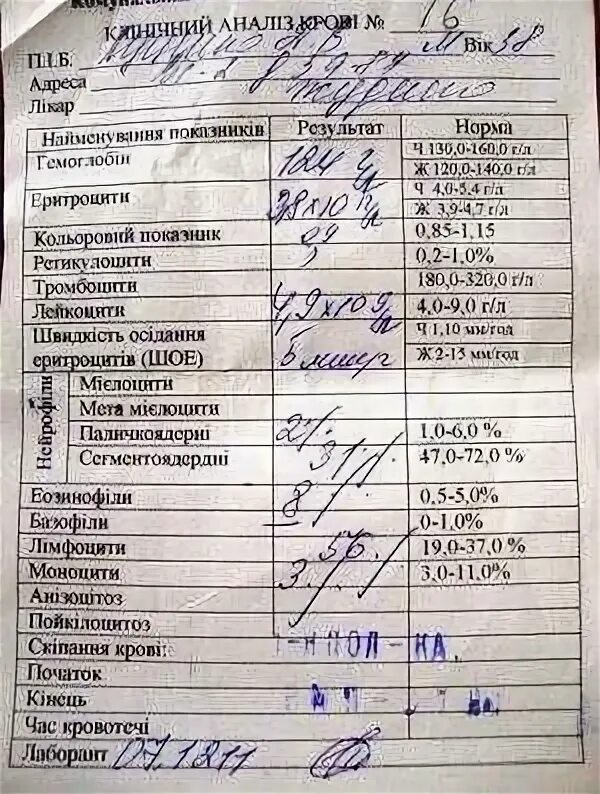 КЛІНІЧНИЙ АНАЛІЗ КРОВІ № 16
П.І.Б. М Вік 38
Адреса
Лікар
Найменування показників Результат Норма
Гемоглобін 124 г/л Ч 130,0-160,0 г/л
Ж 120,0-140,0 г/л
Еритроцити 3,8×10 г/л Ч 4,0-5,4 г/л
Ж 3,9-4,7 г/л
Кольоровий показник 09 0,85-1,15
Ретикулоцити 0,2-1,0%
Тромбоцити 180,0-320,0 г/л
Лейкоцити 4,9×10 9/л 4,0-9,0 г/л
Швидкість осідання Ч 1,10 мм/год
еритроцитів (ШОЕ) 5 мм/г Ж 2-15 мм/год
Нейрофіли
Мієлоцити
Мета мієлоцити
Паличкоядерні 2% 1,0-6,0 %
Сегментоядердні 31% 47,0-72,0 %
Еозинофіли 8% 0,5-5,0%
Базофіли 0-1,0%
Лімфоцити 56% 19,0-37,0 %
Моноцити 3% 3,0-11,0%
Анізоцитоз
Пойкілоцитоз
Скіпання крові:
Початок
Кінець
Час кровотечі
Лаборант